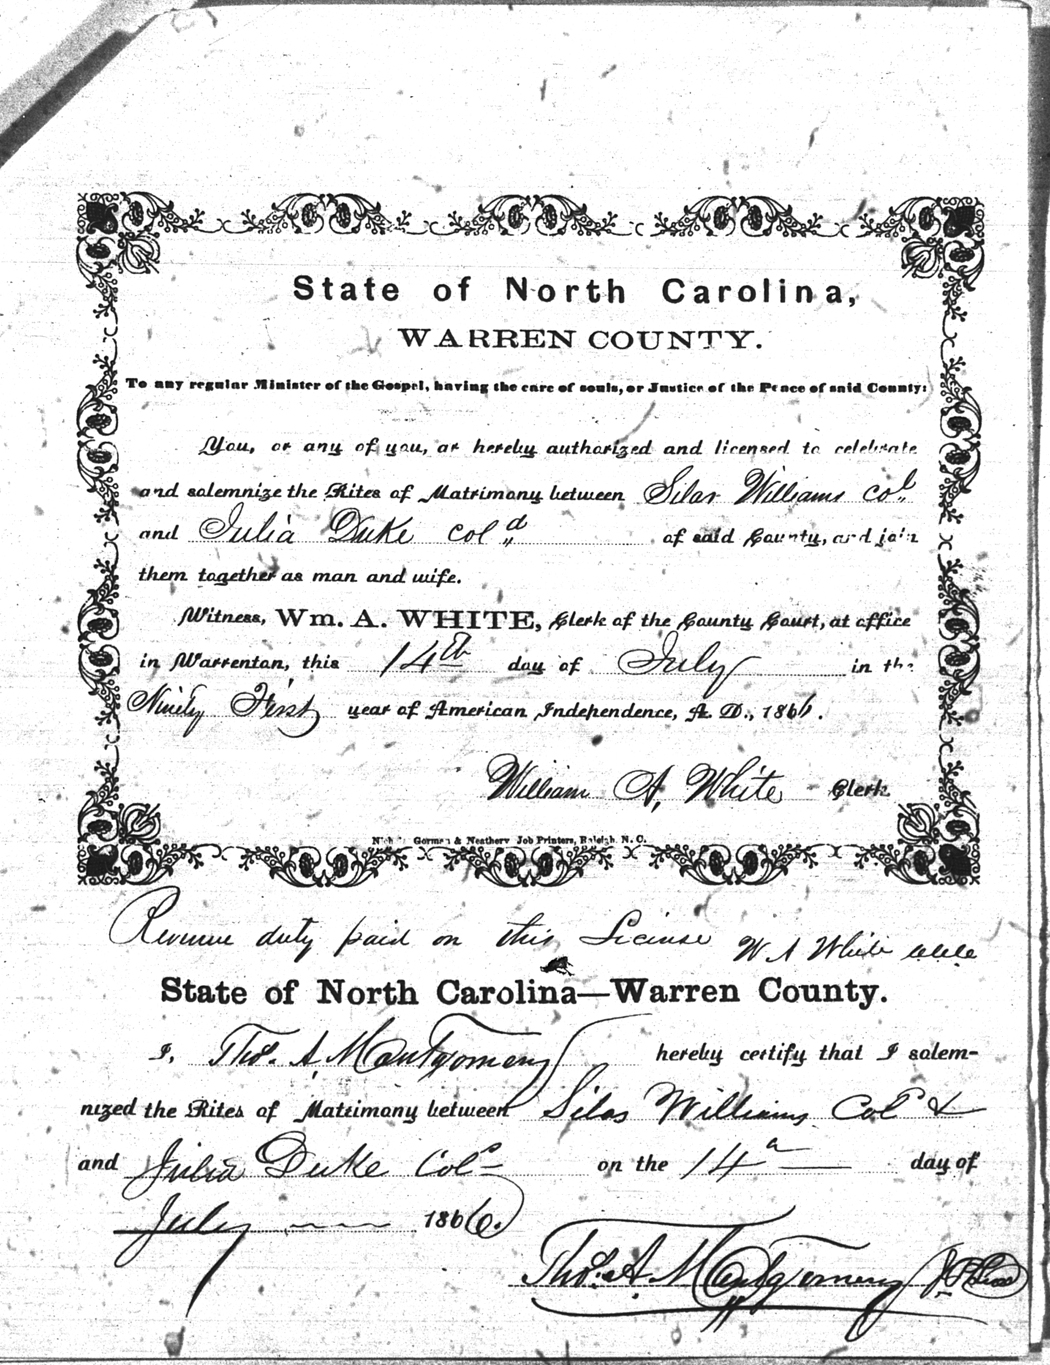 State of North Carolina,
WARREN COUNTY.
To any regular Minister of the Gospel, having the care of souls, or Justice of the Peace of said County:
You, or any of you, ar hereby authorized and licensed to celebrate
and solemnize the Rites of Matrimony between Silas Williams Col.
and Julia Duke Col d of said County, and join
them together as man and wife.
Witness, Wm. A. WHITE, Clerk of the County Court, at office
in Warrenton, this 14th day of July in the
Ninety First year of American Independence, A. D., 1866.
William A, White Clerk
Gorman & Neathery Job Printers, Raleigh, N. C.
Revenue duty paid on this License W A White
State of North Carolina—Warren County.
I, Thos. A. Montgomery hereby certify that I solem-
nized the Rites of Matrimony between Silas Williams Col &
and Julia Duke Col on the 14 day of
July 1866.
Thos. A. Montgomery